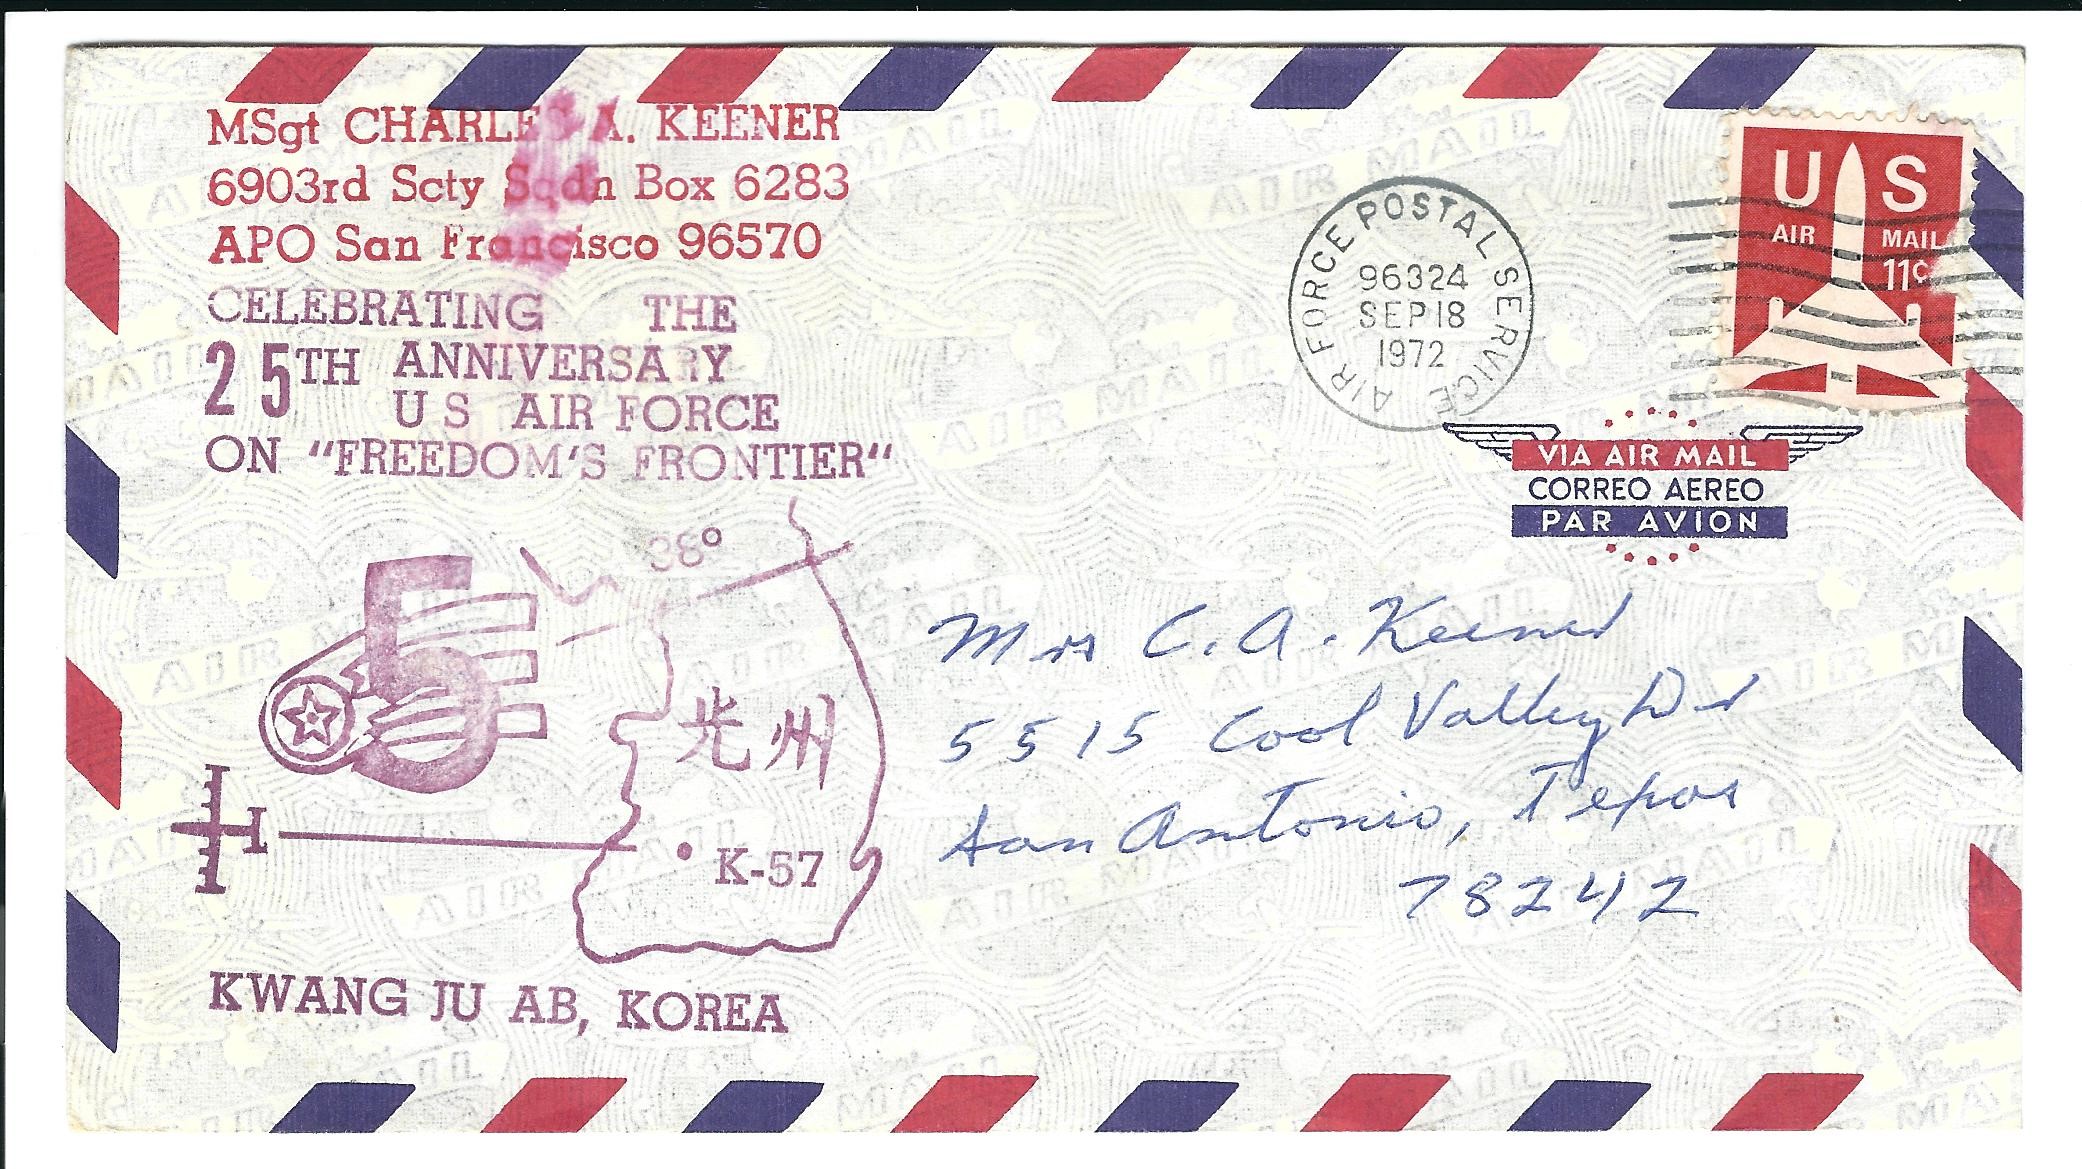 MSgt CHARLES A. KEENER
6903rd Scty Sqdn Box 6283
APO San Francisco 96570
CELEBRATING THE
25TH ANNIVERSARY
US AIR FORCE
ON "FREEDOM'S FRONTIER"
38°
5
光州
K-57
KWANG JU AB, KOREA
AIR FORCE POSTAL SERVICE
96324
SEP 18
1972
US
AIR MAIL
11c
VIA AIR MAIL
CORREO AEREO
PAR AVION
Mrs C. A. Keener
5515 Cool Valley Dr
San Antonio, Texas
78242